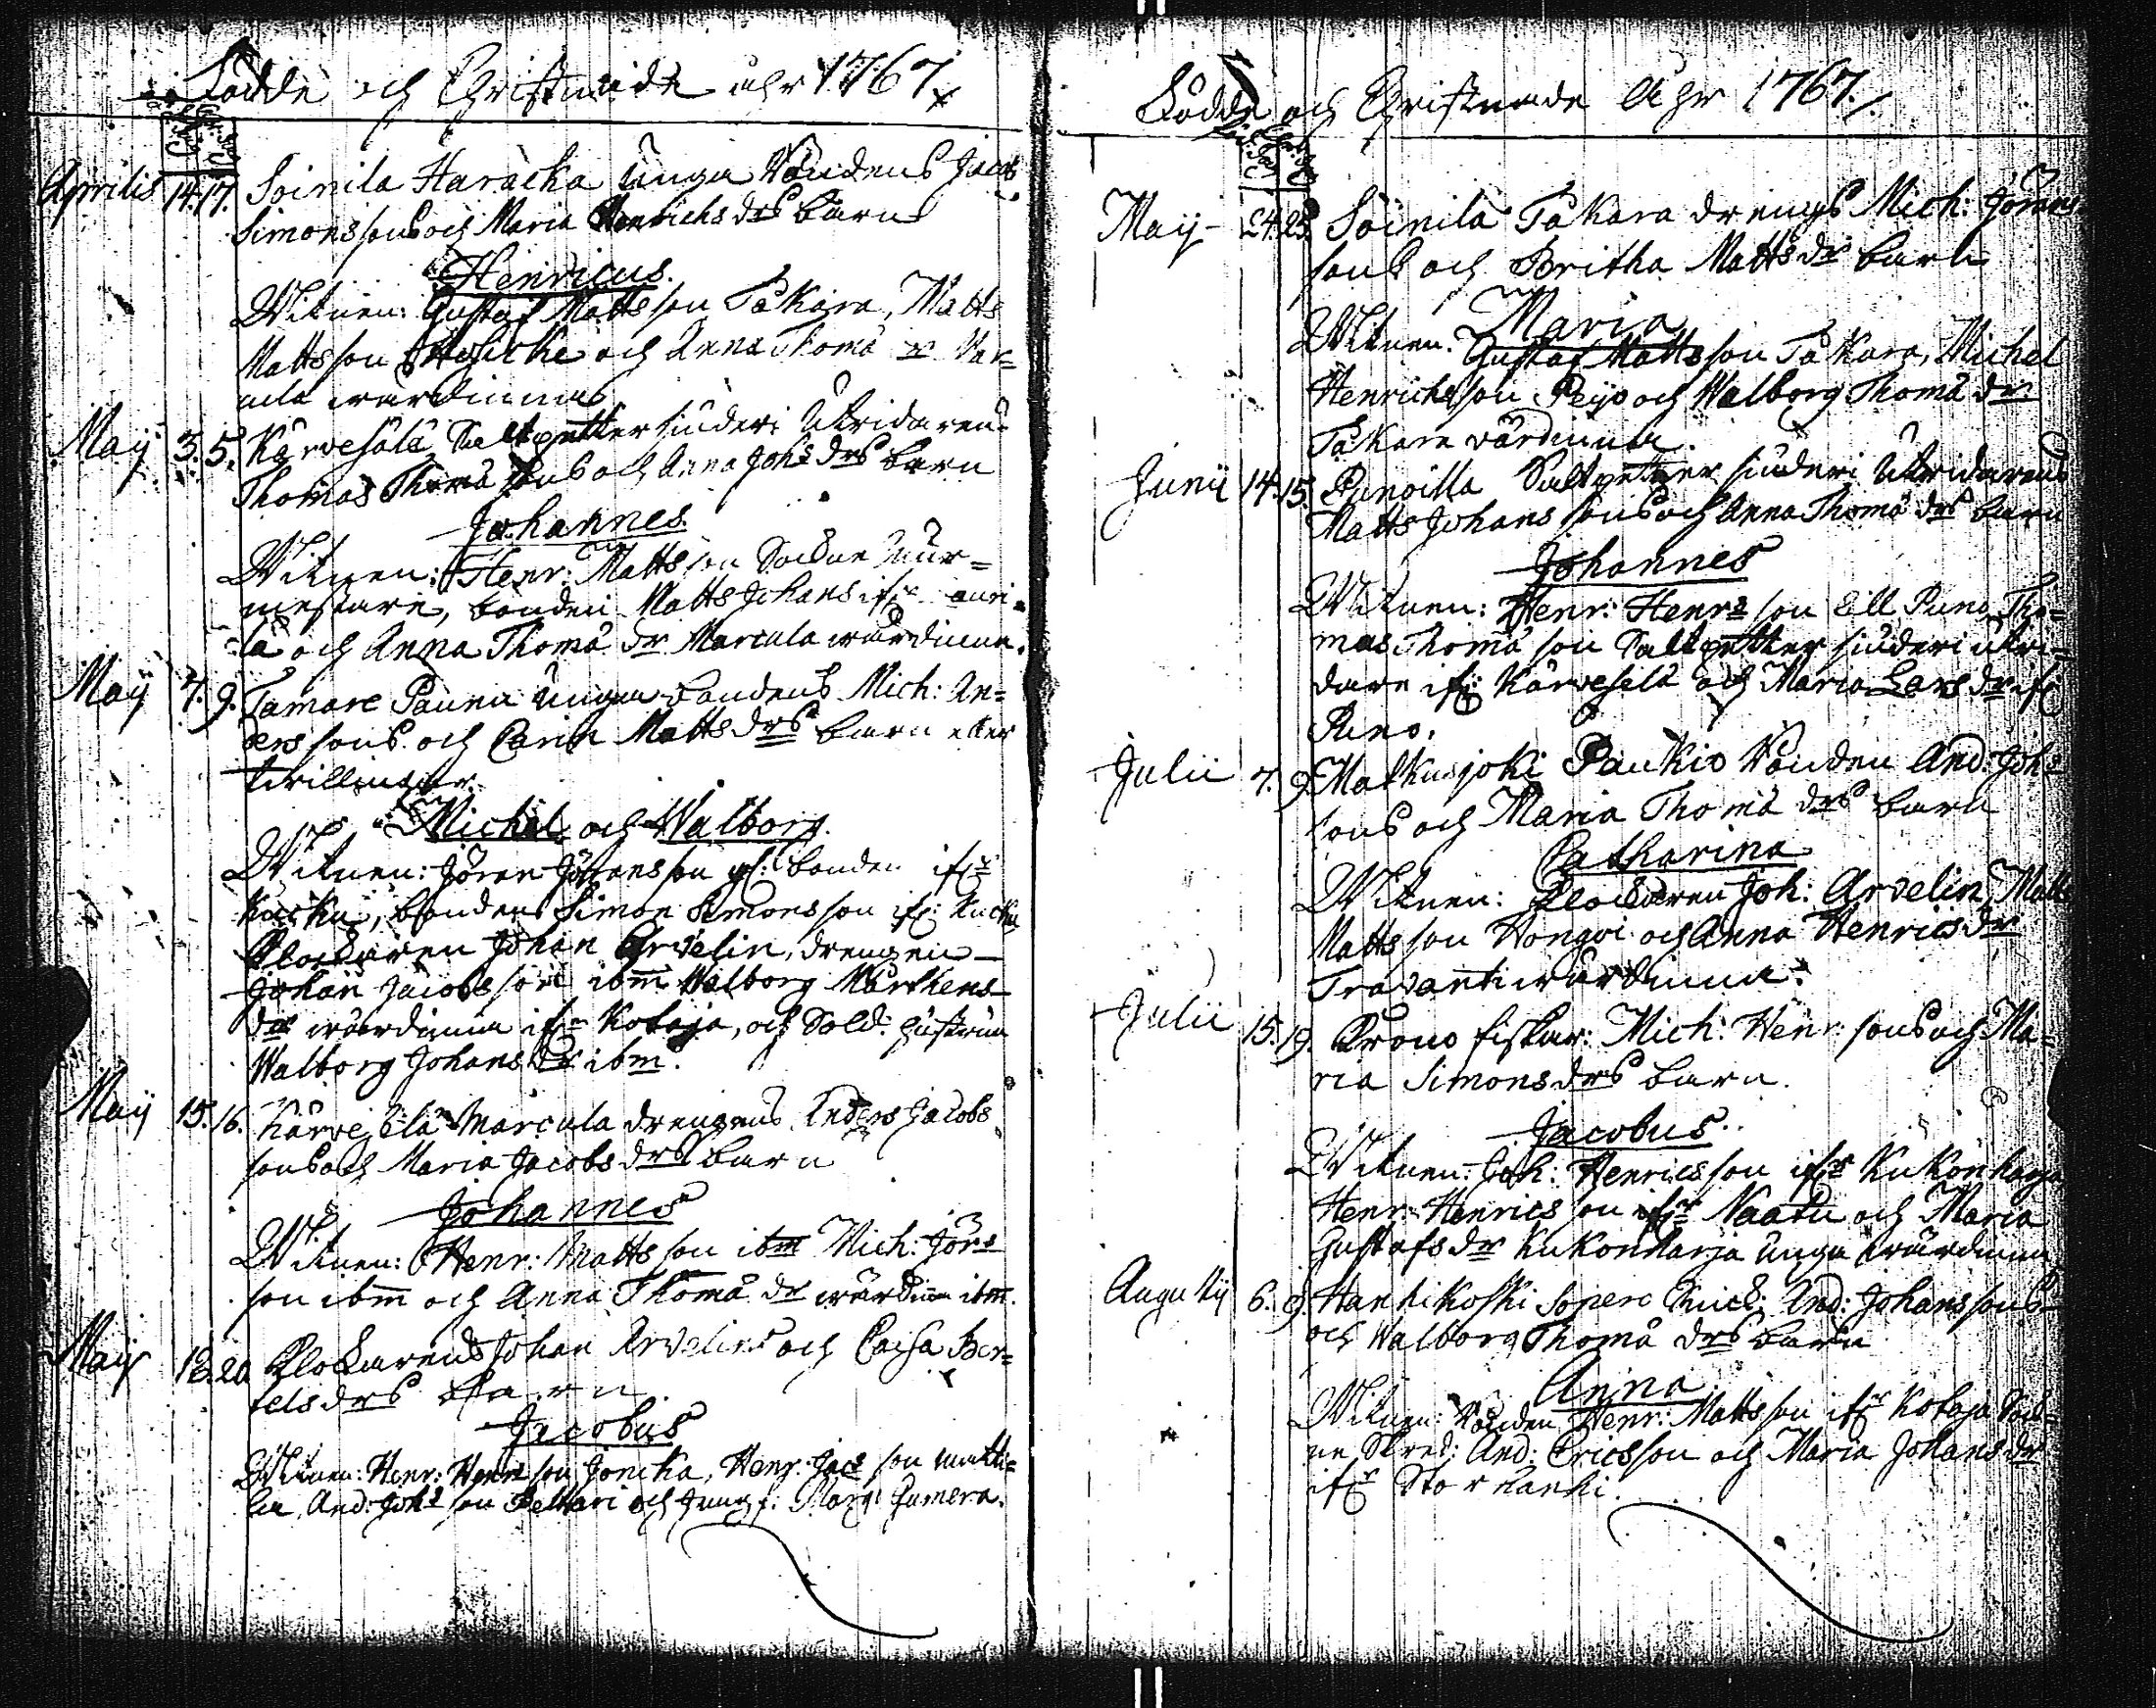 Födde och Christnade åhr 1767
Aprilis 14. 17. Soinila Haracka Unga Bondens Jacob
Simonssons och Maria Henrichsdrs barn
Henricus.
Witnen: Gustaf Mattsson Tåkara, Matts
Mattsson och Anna Thomä dr
wärdinna
Maij 3. 5. Karvesälä Saltpetter siuderi Utridarens
Thomas Thomä sons och Anna Johs drs barn
Johannes.
Witnen: Henr: Mattsson Sockne
mestare, bonden Matts Johans ifr
la och Anna Thomä dr Marcula wärdinna.
Maij 7. 9. Tamare Pauna Unga bondens Mich: An=
ders sons och Carin Matts drs barn eller
twillingar.
Michel och Walborg.
Witnen: Jören Jöransson gl: bonden ifr
bonden Simon Simonsson ifr:
Klockaren Johan Arvelin, drengen
Johan Jacobsson ibm Walborg Mårthens
dr wärdinna ifr Kotaja, och Sold: hustrun
Walborg Johans dr ibm.
Maij 15. 16. Karvesälä Marcula drengens Anders Jacobs
sons och Maria Jacobs drs barn
Johannes
Witnen: Henr: Mattsson ibm Mich: Jörs
son ibm och Anna Thomä dr wärdinna ibm.
Maij 18. 20 Klockarens Johan Arvelins och Caisa Ber=
tels drs barn.
Jacobus
Witnen: Henr: Henrs son Joncka, Henr: Jacs son Matti=
la, And: Johs son Peltari och Jungf: Marg: Humera.
Födde och Christnade Åhr 1767.
Maij 24. 25. Söinila Tåkara drengs Mich: Jörans
sons och Britha Matts dr barn
Maria
Witnen: Gustaf Mattsson Tåkara, Michel
Henrichsson Peijo och Walborg Thomä dr
Tåkara wärdinna.
Junii 14. 15. Punoilla Saltpetter siuderi Utridarens
Matts Johans sons och Anna Thomä drs barn
Johannes
Witnen: Henr: Henrs son Lill Puno, Tho=
mas Thomä son Saltpetter siuderi utri=
dare ifr: Karvesälä och Maria Lars dr ifr
Puno.
Julii 7. 9. Matkusjoki Paukio Bonden And: Johs
sons och Maria Thomä drs barn
Catharina
Witnen: Klockaren Joh: Arvelin, Matts
Mattsson Hongoi och Anna Henrics dr
Travanti wärdinna.
Julii 15. 19. Krono fiskar: Mich: Henr: sons och Ma=
ria Simons drs barn.
Jacobus.
Witnen: Joh: Henricsson ifr Kukonharja
Henr: Henrics son ifr Naatu och Maria
Gustafs dr Kukonharja Unga wärdinna
Augustij 6. 9. Hanhikoski Sopero And: Johans sons
och Walborg Thomä drs barn
Anna
Witnen: Bonden Henr: Mattsson ifr Kotaja Sock=
ne Skred: And: Ericsson och Maria Johans dr
ifr Stor Hanhi.